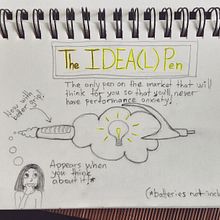 The IDEA(L) Pen
The only pen on the market that will
think for you so that you'll never
have performance anxiety!
Now with
better grip!
Appears when
you think
about it!*
(*batteries not incl